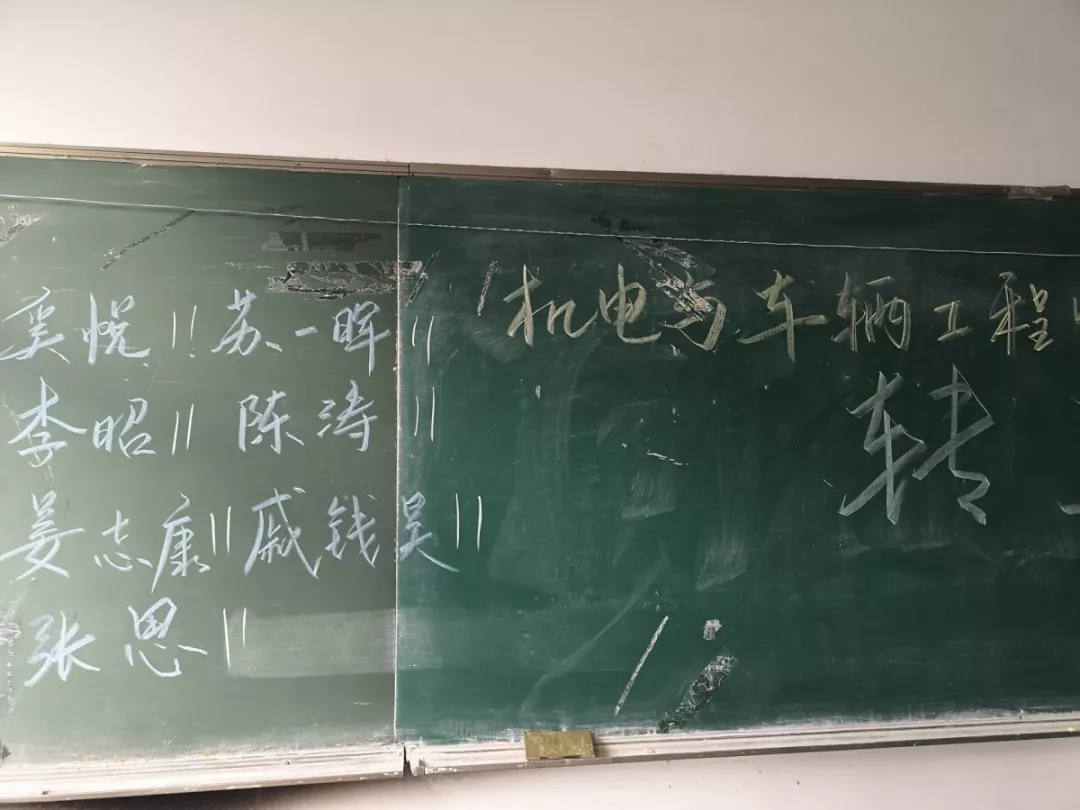 奚悦 苏一晖
李昭 陈涛
姜志康 戚钱昊
张思
机电与车辆工程
转